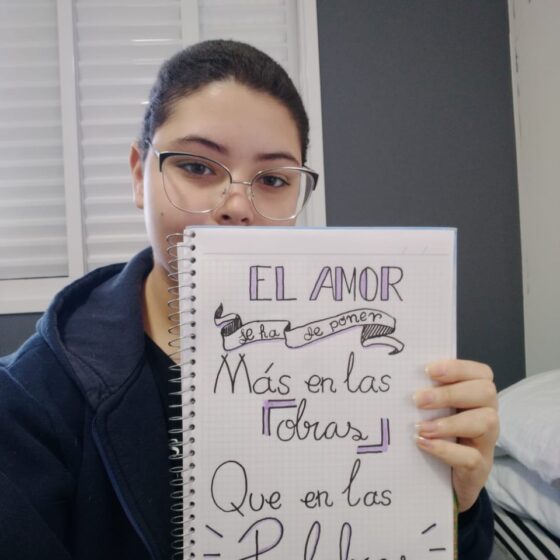 EL AMOR
se ha de poner
Más en las
obras
Que en las
Palabras